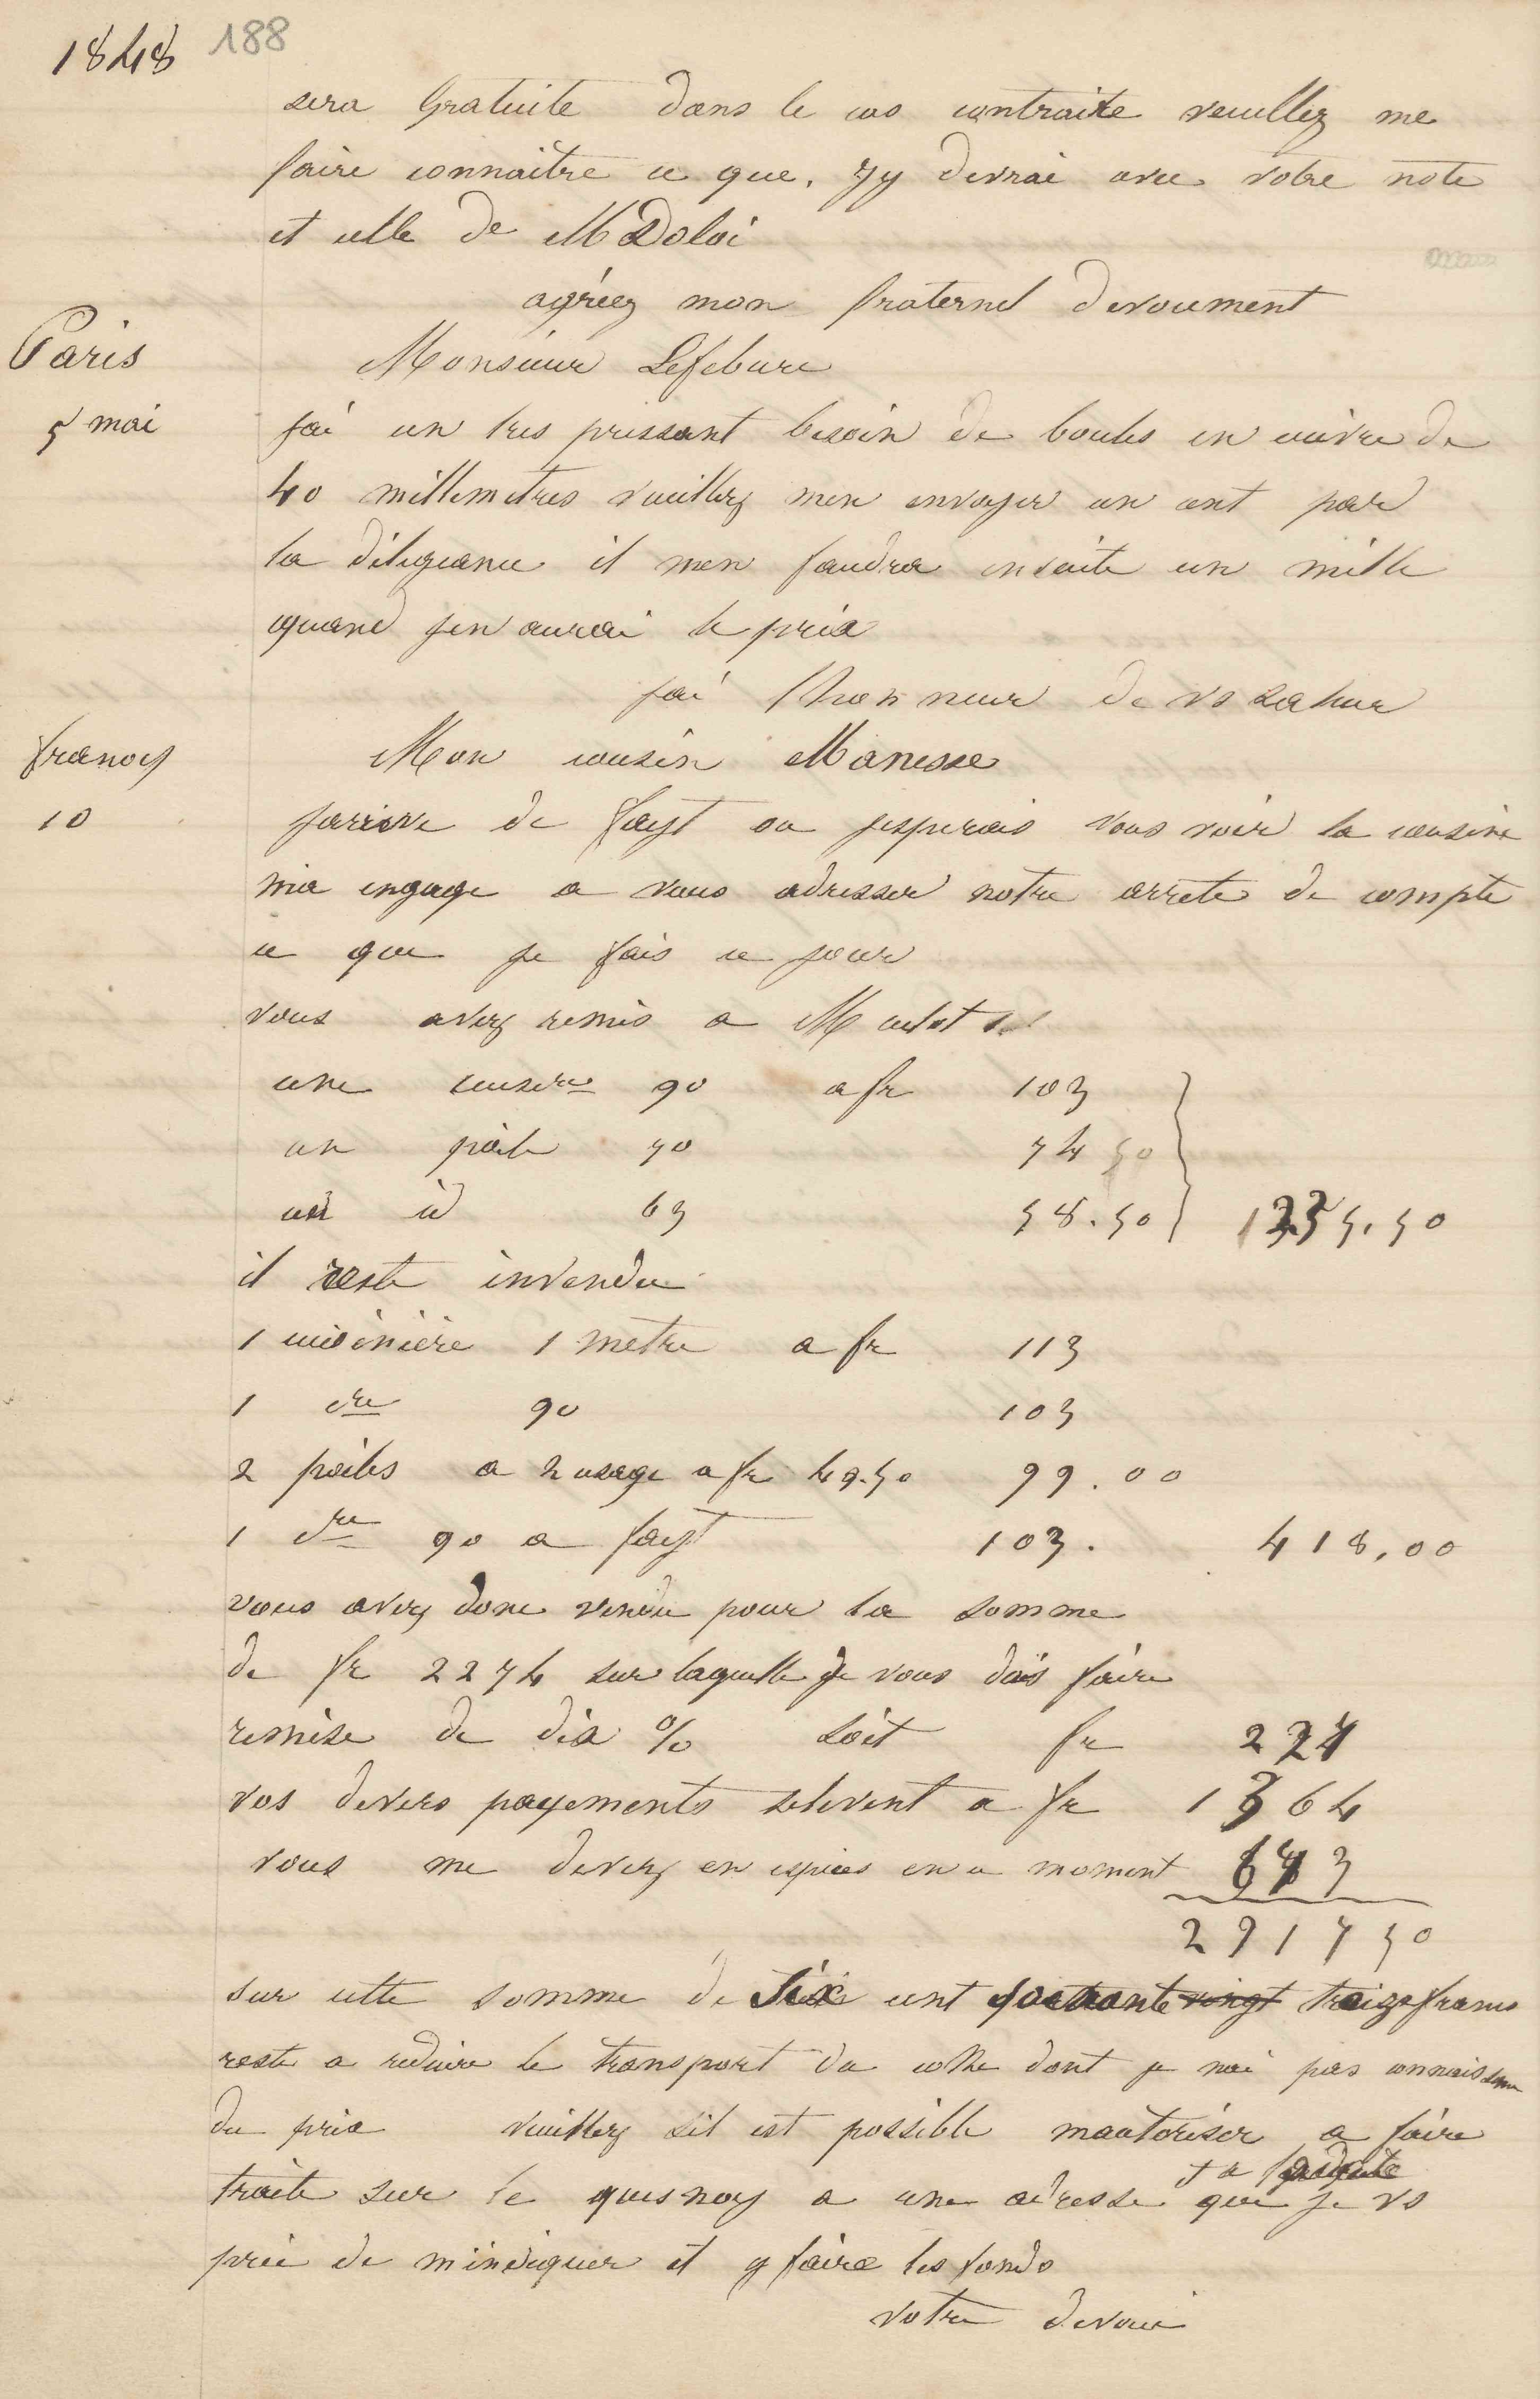 1848 188
sera Gratuite dans le cas contraire veuillez me
faire connaitre ce que j'y devrai avec votre note
et celle de M Doloi
agréez mon fraternel devoument
Paris
Monsieur Lefebure
5 mai
jai un tres pressant besoin de boules en cuivre de
40 millemetres veuillez men envoyer un cent par
la diligeance il men faudra ensuite un mille
quand jen aurai le prix
jai lhonneur de vs saluer
franoy
Mon cousin Manesse
10
jarrive de fayt ou jesperais vous voir la cousine
ma engage a vous adresser notre arrete de compte
ce que je fais ce jour
vous avez remis a M
une cuisre 90 a fr 103
un poile 70 74 50
un id 63 58.50 235.50
il reste invendu
1 cuisiniere 1 metre a fr 113
1 dre 90 103
2 poiles a 2 usage a fr 49.50 99.00
1 dre 90 a fayt 103. 418,00
vous avez donc vendu pour la somme
de fr 2274 sur laquelle je vous dois faire
remise de dix % soit fr 227
vos divers payements selevent a fr 1364
vous me devez en espices en ce moment 673
2917 50
sur cette somme de six cent soixante vingt treize francs
reste a reduire le transport du colle dont je nai pas connaissance
du prix veuillez sil est possible mautoriser a faire
traite sur le quesnoy a une adresse que je vs
prie de mindiquer et y faire les fonds
votre devoué